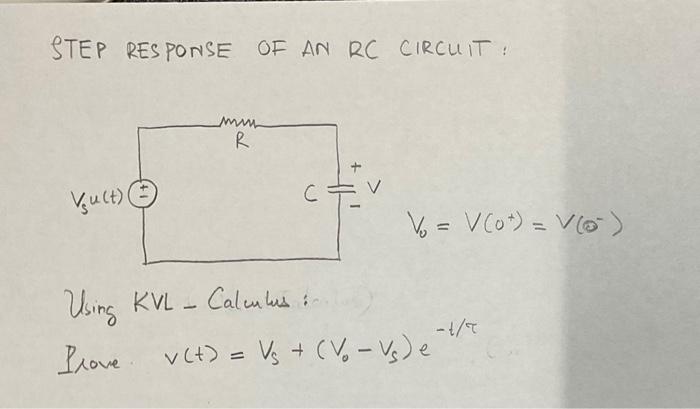 STEP RESPONSE OF AN RC CIRCUIT :
R
+
Vsu(t) ± C V
-
V₀ = V(0⁺) = V(0⁻)
Using KVL - Calculus :
Prove v(t) = Vs + (V₀ - Vs) e^-t/τ